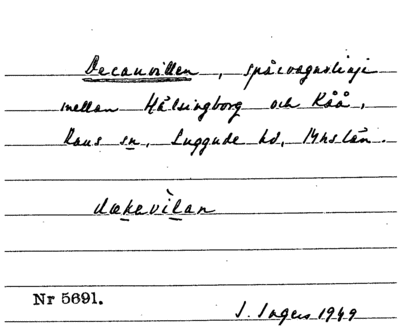 Decauvillen, spårvagnslinje
mellan Hälsingborg och Råå,
Raus sn, Luggude hd, Mhs län.
dækevìlan
Nr 5691.
I. Ingers 1949